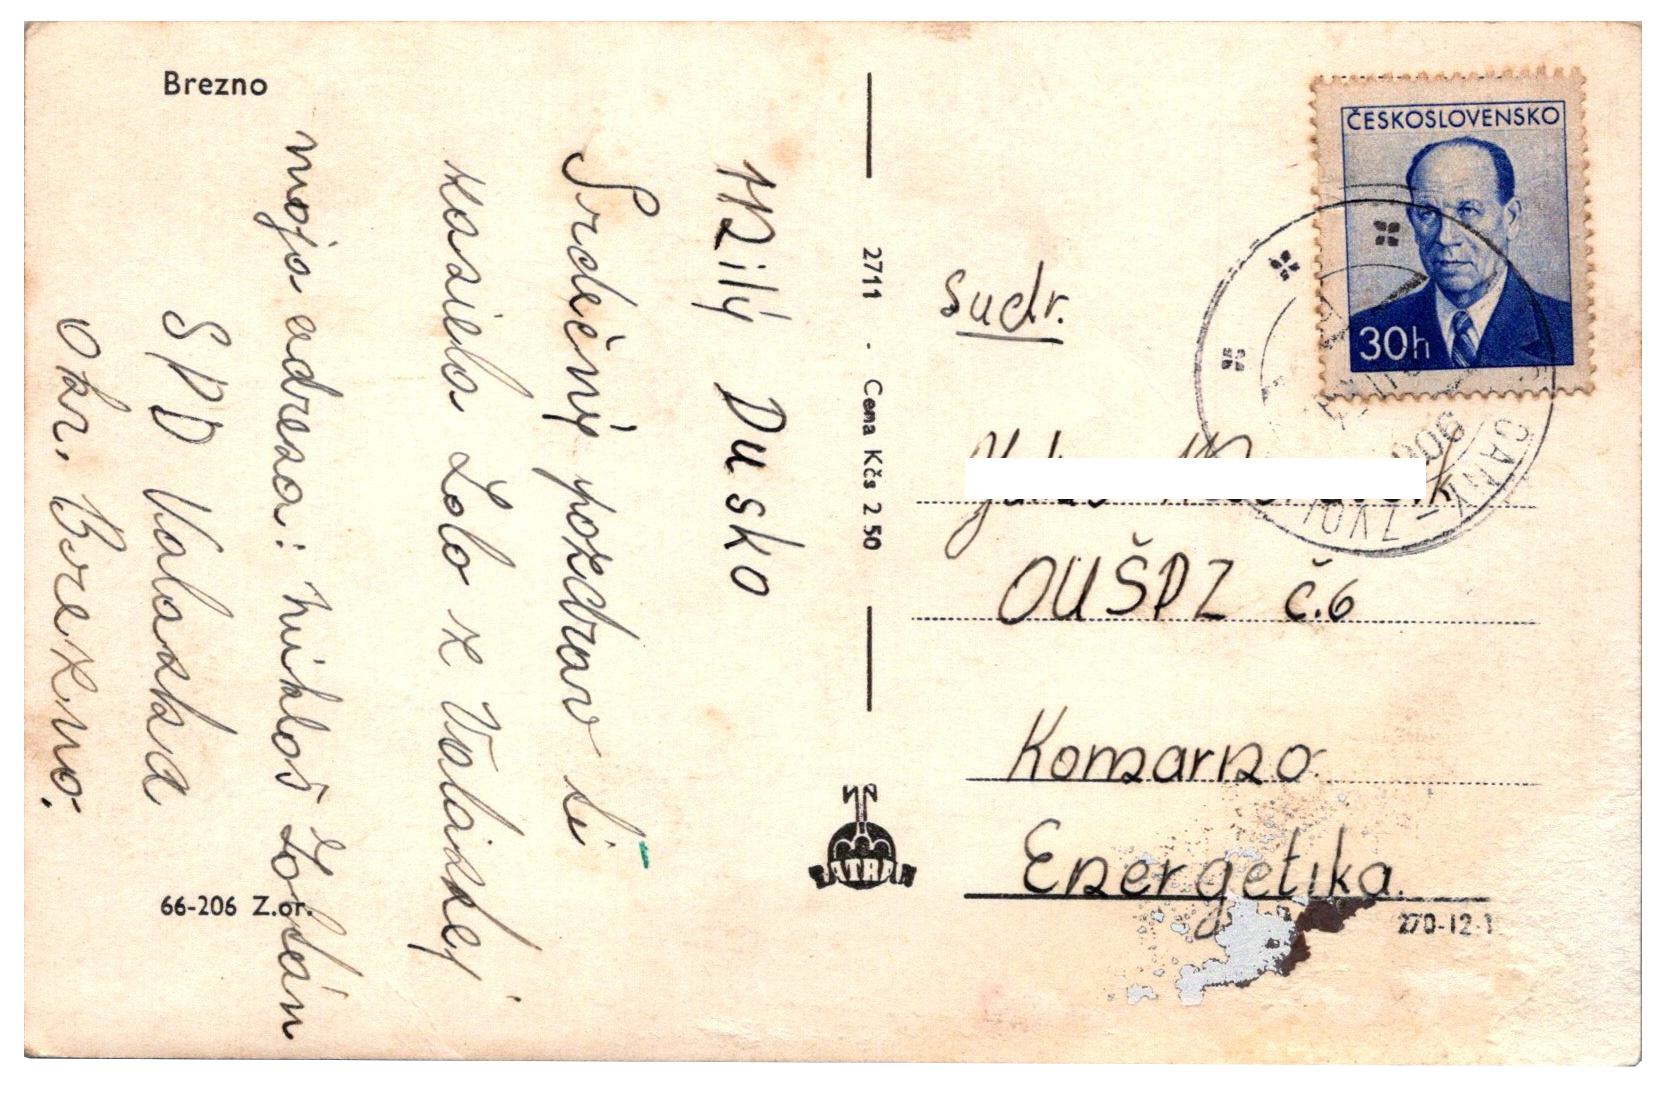 Brezno
Milý Dusko
Srdečný pozdrav si
zasiela Zolo z Valaskej
moja adresa: Mikloš Zoltán
SPD Valaska
Okr. Brezno.
66-206 Z.or.
2711 - Cena Kčs 2 50
TATRAN
ČESKOSLOVENSKO
30h
sudr.
OUŠPZ č.6
Komarno
Energetika.
270-12-1